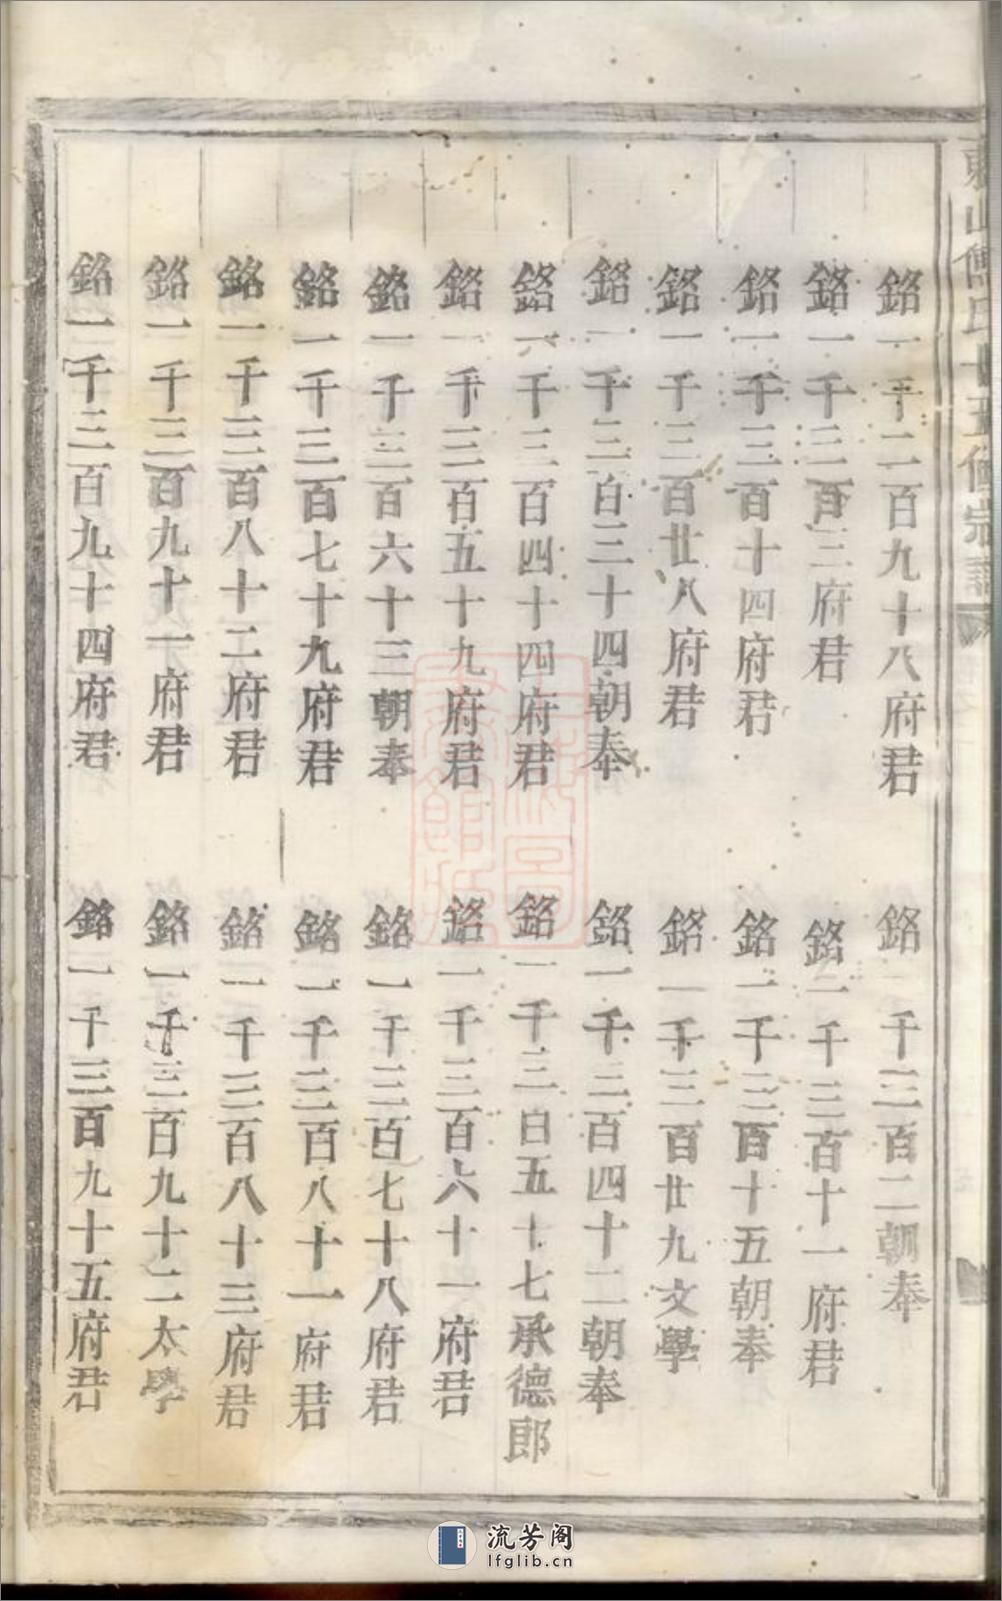 東山傅氏十五修宗譜
銘一千二百九十八府君
銘一千三百二朝奉
銘一千三百三府君
銘一千三百十一府君
銘一千三百十四府君
銘一千三百十五朝奉
銘一千三百廿八府君
銘一千三百廿九文學
銘一千三百三十四朝奉
銘一千三百四十二朝奉
銘一千三百四十四府君
銘一千三百五十七承德郎
銘一千三百五十九府君
銘一千三百六十一府君
銘一千三百六十三朝奉
銘一千三百七十八府君
銘一千三百七十九府君
銘一千三百八十一府君
銘一千三百八十二府君
銘一千三百八十三府君
銘一千三百九十一府君
銘一千三百九十二太學
銘一千三百九十四府君
銘一千三百九十五府君
流芳阁
lfglib.cn